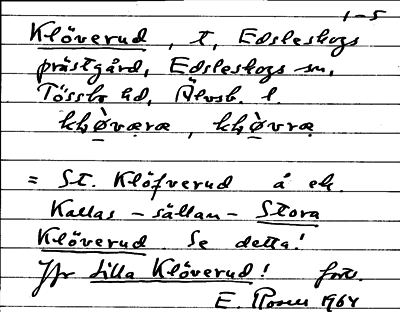 1-5
Klöverud, t, Edsleskogs
prästgård, Edsleskogs sn,
Tössbo hd, Älvsb. l.
khø̀væræ, khø̀vræ
= St. Klöfverud å ek.
Kallas - sällan - Stora
Klöverud. Se detta!
Jfr Lilla Klöverud! forts.
E. Rosen 1964